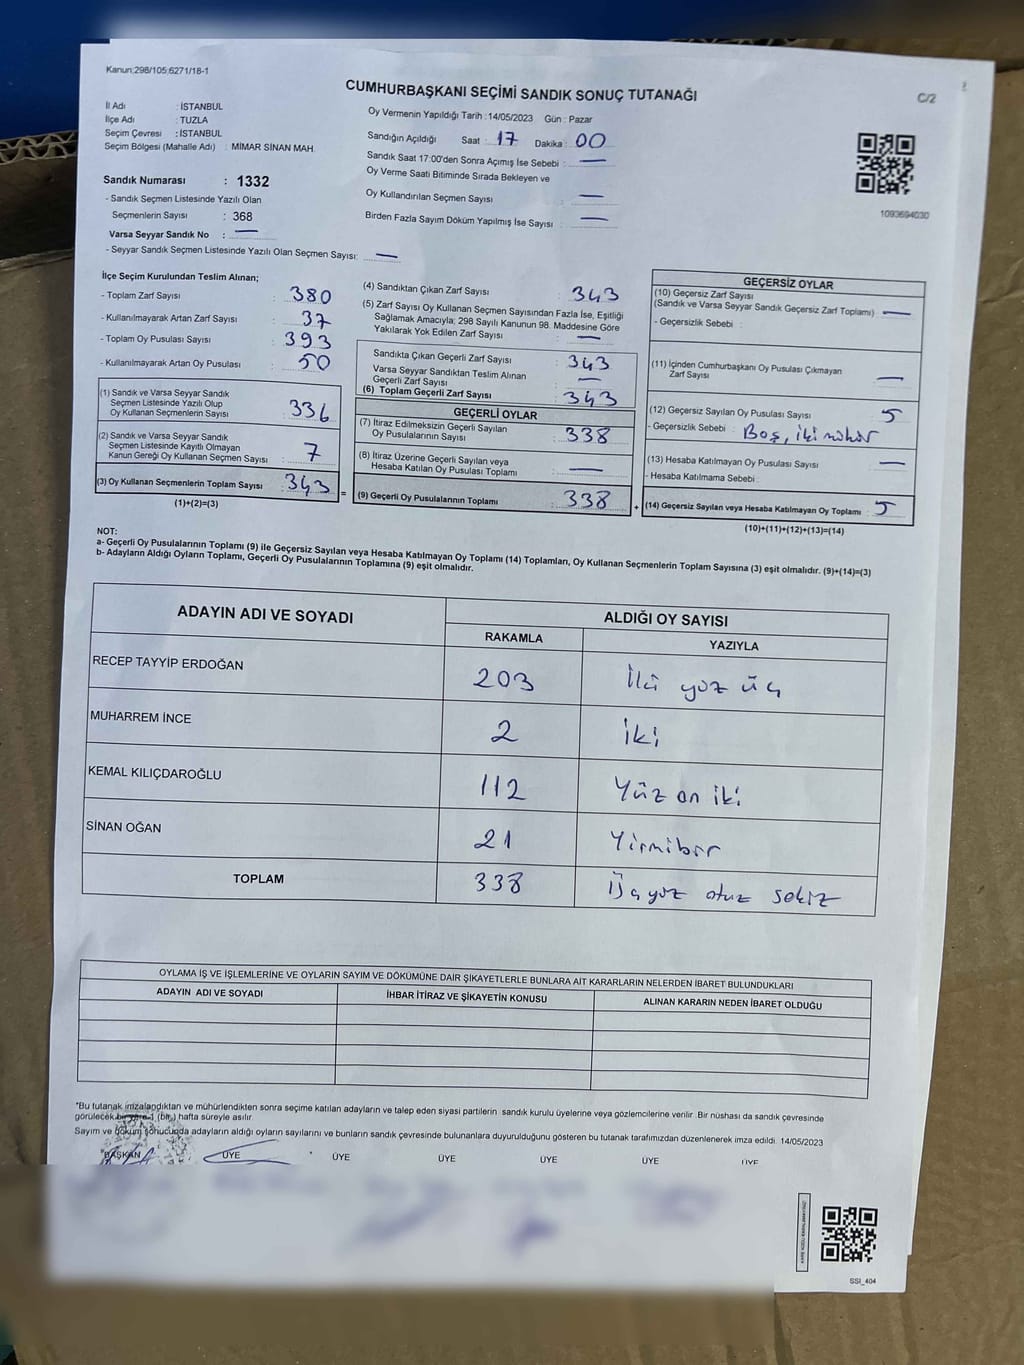 Kanun:298/105;6271/18-1
CUMHURBAŞKANI SEÇİMİ SANDIK SONUÇ TUTANAĞI
C/2
İl Adı : İSTANBUL
İlçe Adı : TUZLA
Seçim Çevresi : İSTANBUL
Seçim Bölgesi (Mahalle Adı) : MİMAR SİNAN MAH.
Sandık Numarası : 1332
- Sandık Seçmen Listesinde Yazılı Olan
Seçmenlerin Sayısı : 368
Varsa Seyyar Sandık No : —
- Seyyar Sandık Seçmen Listesinde Yazılı Olan Seçmen Sayısı: —
Oy Vermenin Yapıldığı Tarih :14/05/2023 Gün : Pazar
Sandığın Açıldığı Saat : 17 Dakika : 00
Sandık Saat 17:00'den Sonra Açımış İse Sebebi : —
Oy Verme Saati Bitiminde Sırada Bekleyen ve
Oy Kullandırılan Seçmen Sayısı : —
Birden Fazla Sayım Döküm Yapılmış İse Sayısı : —
1093694030
İlçe Seçim Kurulundan Teslim Alınan;
- Toplam Zarf Sayısı : 380
- Kullanılmayarak Artan Zarf Sayısı : 37
- Toplam Oy Pusulası Sayısı : 393
- Kullanılmayarak Artan Oy Pusulası : 50
(1) Sandık ve Varsa Seyyar Sandık
Seçmen Listesinde Yazılı Olup
Oy Kullanan Seçmenlerin Sayısı : 336
(2) Sandık ve Varsa Seyyar Sandık
Seçmen Listesinde Kayıtlı Olmayan
Kanun Gereği Oy Kullanan Seçmen Sayısı : 7
(3) Oy Kullanan Seçmenlerin Toplam Sayısı : 343 =
(1)+(2)=(3)
(4) Sandıktan Çıkan Zarf Sayısı : 343
(5) Zarf Sayısı Oy Kullanan Seçmen Sayısından Fazla İse, Eşitliği
Sağlamak Amacıyla; 298 Sayılı Kanunun 98. Maddesine Göre
Yakılarak Yok Edilen Zarf Sayısı : —
Sandıkta Çıkan Geçerli Zarf Sayısı : 343
Varsa Seyyar Sandıktan Teslim Alınan
Geçerli Zarf Sayısı : —
(6) Toplam Geçerli Zarf Sayısı : 343
GEÇERLİ OYLAR
(7) İtiraz Edilmeksizin Geçerli Sayılan
Oy Pusulalarının Sayısı : 338
(8) İtiraz Üzerine Geçerli Sayılan veya
Hesaba Katılan Oy Pusulası Toplamı : —
(9) Geçerli Oy Pusulalarının Toplamı : 338 +
GEÇERSİZ OYLAR
(10) Geçersiz Zarf Sayısı
(Sandık ve Varsa Seyyar Sandık Geçersiz Zarf Toplamı) —
- Geçersizlik Sebebi :
(11) İçinden Cumhurbaşkanı Oy Pusulası Çıkmayan
Zarf Sayısı : —
(12) Geçersiz Sayılan Oy Pusulası Sayısı : 5
- Geçersizlik Sebebi : Boş, iki mühür
(13) Hesaba Katılmayan Oy Pusulası Sayısı : —
- Hesaba Katılmama Sebebi :
(14) Geçersiz Sayılan veya Hesaba Katılmayan Oy Toplamı : 5
(10)+(11)+(12)+(13)=(14)
NOT:
a- Geçerli Oy Pusulalarının Toplamı (9) ile Geçersiz Sayılan veya Hesaba Katılmayan Oy Toplamı (14) Toplamları, Oy Kullanan Seçmenlerin Toplam Sayısına (3) eşit olmalıdır. (9)+(14)=(3)
b- Adayların Aldığı Oyların Toplamı, Geçerli Oy Pusulalarının Toplamına (9) eşit olmalıdır.
ADAYIN ADI VE SOYADI ALDIĞI OY SAYISI
RAKAMLA YAZIYLA
RECEP TAYYİP ERDOĞAN 203 İki yüz üç
MUHARREM İNCE 2 iki
KEMAL KILIÇDAROĞLU 112 Yüz on iki
SİNAN OĞAN 21 Yirmibir
TOPLAM 338 Üçyüz otuz sekiz
OYLAMA İŞ VE İŞLEMLERİNE VE OYLARIN SAYIM VE DÖKÜMÜNE DAİR ŞİKAYETLERLE BUNLARA AİT KARARLARIN NELERDEN İBARET BULUNDUKLARI
ADAYIN ADI VE SOYADI İHBAR İTİRAZ VE ŞİKAYETİN KONUSU ALINAN KARARIN NEDEN İBARET OLDUĞU
*Bu tutanak imzalandıktan ve mühürlendikten sonra seçime katılan adayların ve talep eden siyasi partilerin sandık kurulu üyelerine veya gözlemcilerine verilir. Bir nüshası da sandık çevresinde
görülecek bir yere 1 (bir) hafta süreyle asılır.
Sayım ve döküm sonucunda adayların aldığı oyların sayılarını ve bunların sandık çevresinde bulunanlara duyurulduğunu gösteren bu tutanak tarafımızdan düzenlenerek imza edildi. 14/05/2023
BAŞKAN ÜYE ÜYE ÜYE ÜYE ÜYE ÜYE
SSI_404